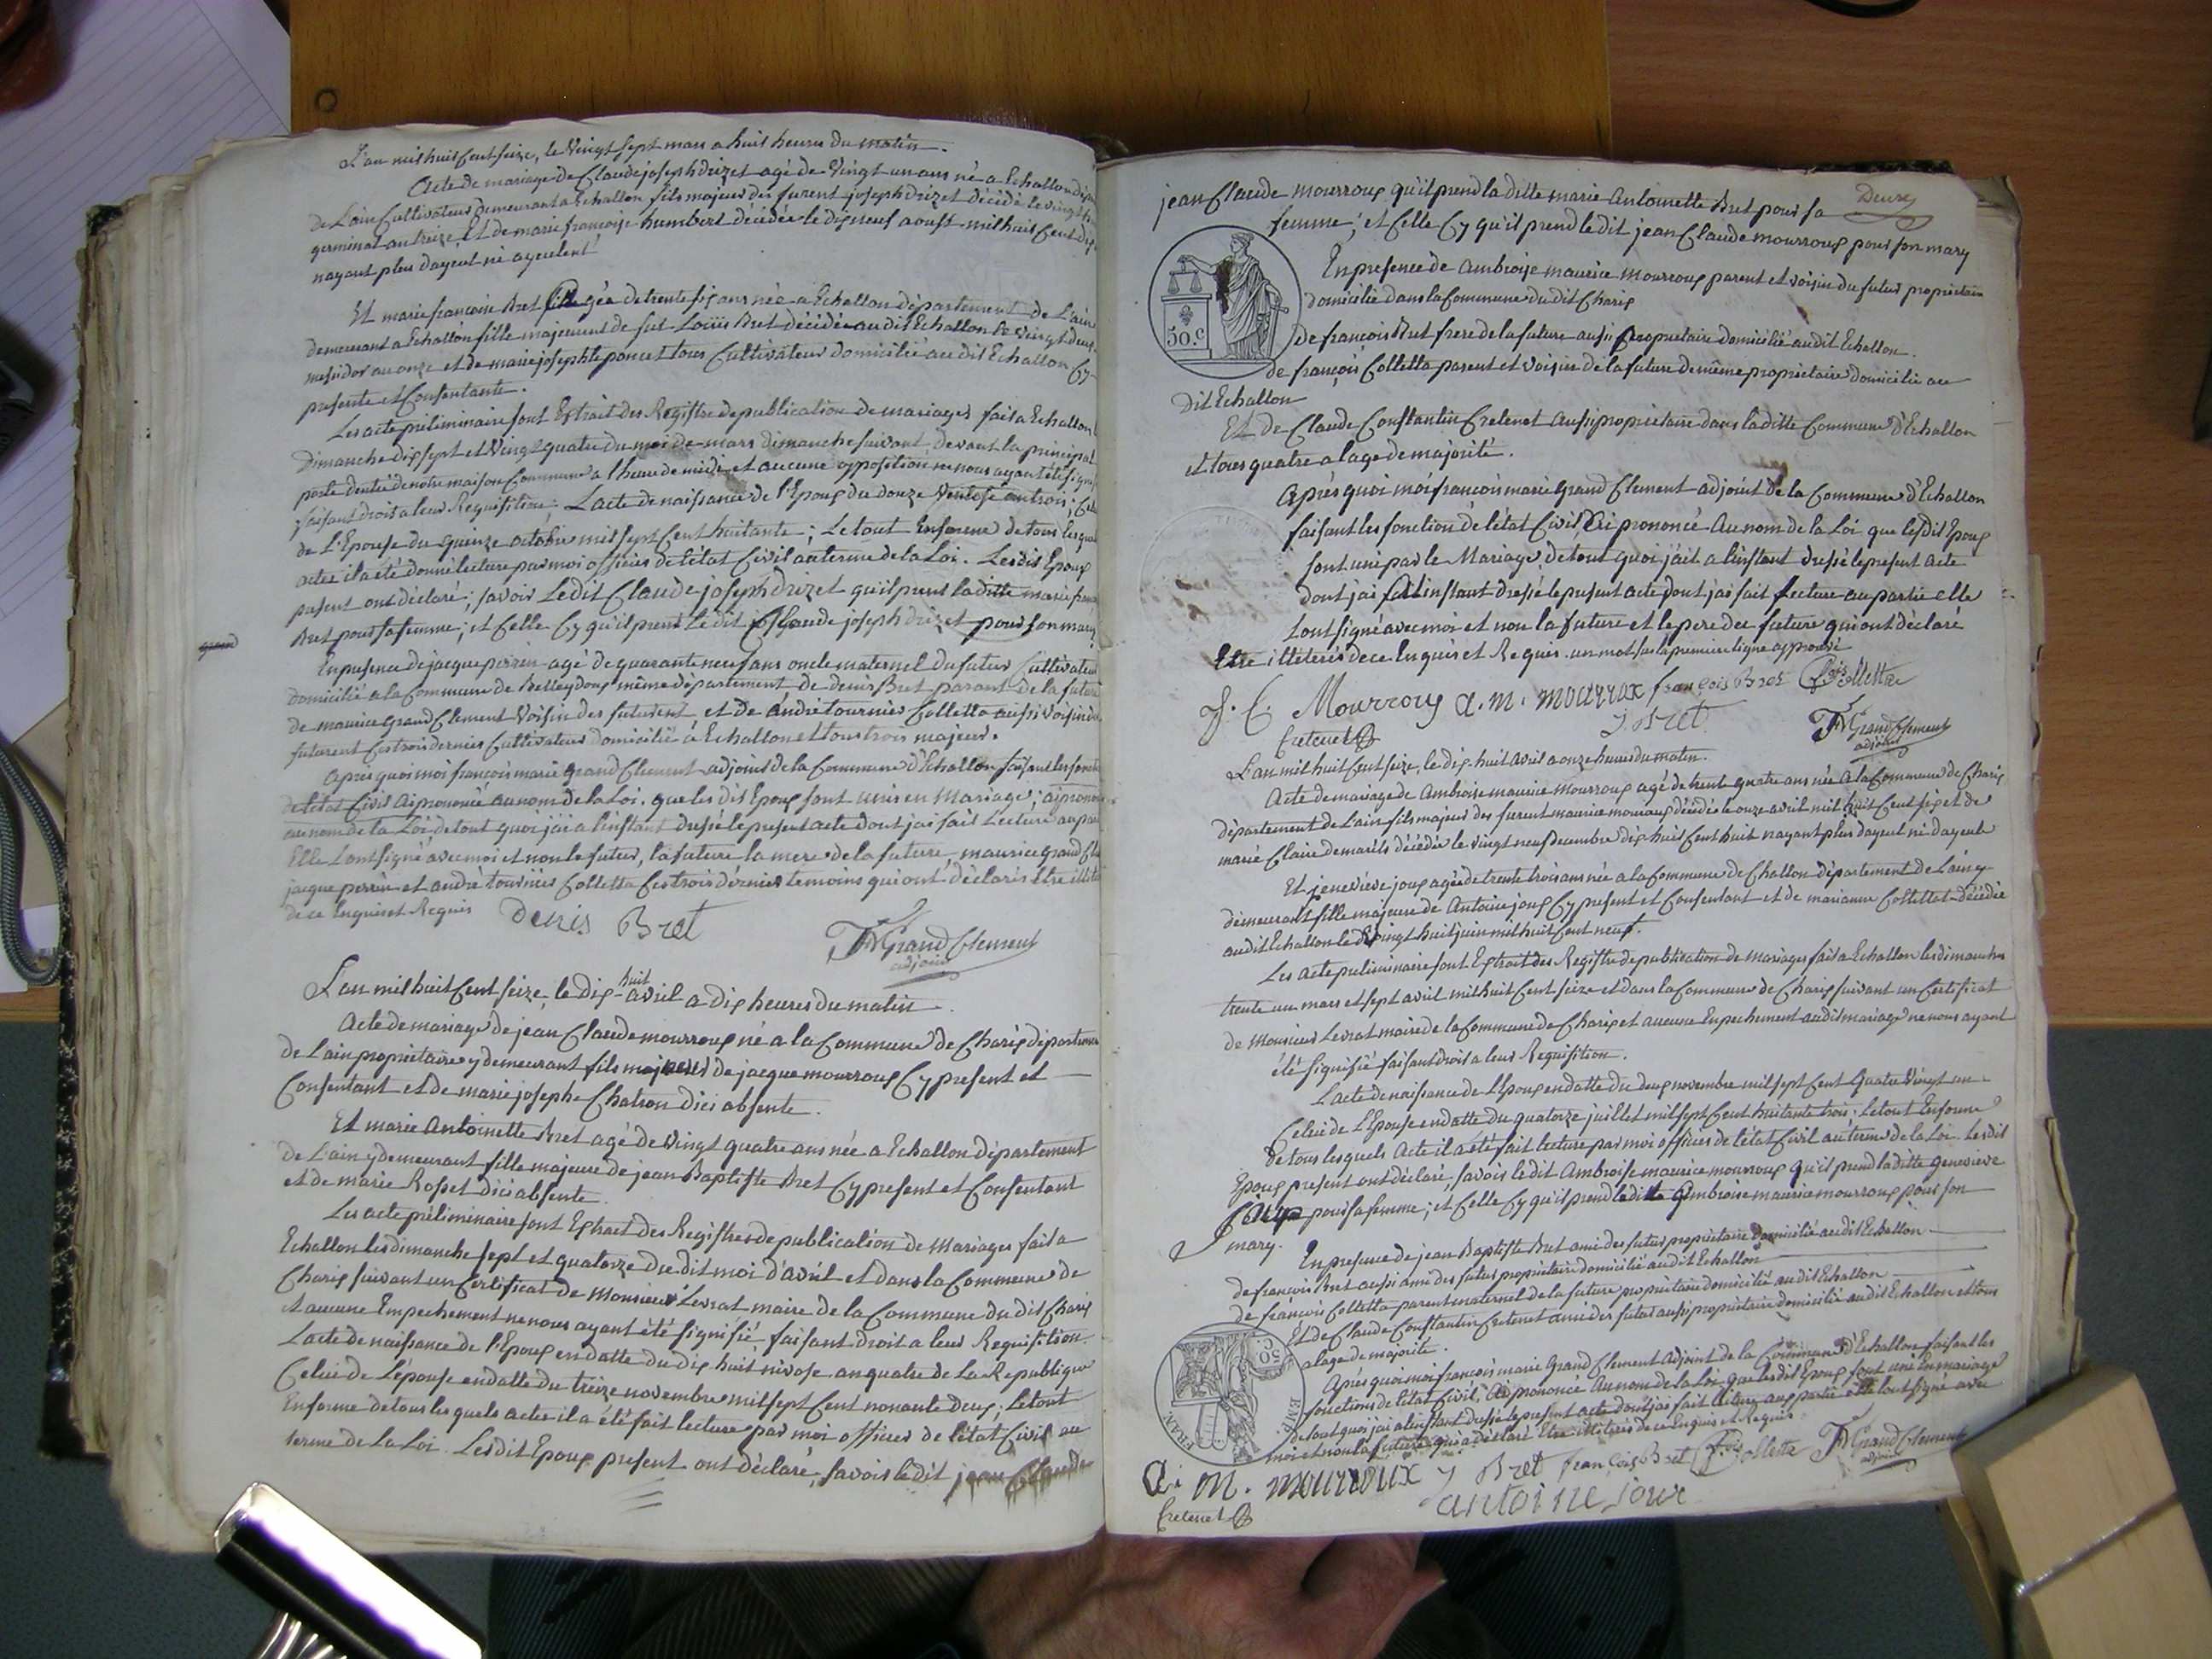 L'an mil huit Cent Seize, le Vingt Sept mars a huit heures du matin.
Acte de mariage de Claude joseph drizet agé de Vingt un ans né a Echallon dépar
de L'ain Cultivateur demeurant a Echallon fils majeur des furent joseph drizet décédé le vingt
germinal an treize, Et de marie françoise humbert décédée le dix neuf aoust mil huit Cent dix
nayant plus dayeul ni ayeulent
Et marie françoise Bret agée de trente six ans née a Echallon département de L'ain
demeurant a Echallon fille majeurent de fut Louiis Bret décédé au dit Echallon le vingt deux
messidor an onze et de marie josephte poncet tous Cultivateur domicilié au dit Echallon Cy
presente et Consentante.
Les acte préliminaire sont Extrait des Registre de publication de mariages fait a Echallon
Dimanche dix sept et Vingt quatre du moi de mars dimanche suivant devant la principal
porte dentrée de notre maison Commune a l'heure de midi et aucune opposition ne nous ayant été signi
faisant droit a leur Requisition. L'acte de naissance de l'Epoux du douze Ventose an trois; Cel
de L'Epouse du quinze octobre mil sept Cent huitante; Le tout Enforme de tous lesquel
actes il a été donné lecture par moi officier de l'état Civil au terme de la Loi. Les dis Epoux
present ont déclaré; savoir Le dit Claude joseph drizet qu'il prent la ditte marie franç
Bret pour sa femme; et Celle Cy qu'il prent Le dit Claude joseph drizet pour son mary
En presence de jacque perrin agé de quarante neuf ans oncle maternel du futur Cultivateur
domicilié a la Commune de Belleydoux même département de denis Bret parant de la future
de maurice grand Clement Voisin des futurent et de andré tournier Colletta aussi voisin de
futurent Ces trois dernier Cultivateur domicilié a Echallon et tous trois majeur.
Après quoi moi françois marie grand Clement adjoint de la Commune d'Echallon faisant les fonct
de l'état Civil ai prononcé au nom de la Loi. que les dis Epoux sont unis en Mariage; ai prono
au nom de la Loi, de tout quoi j'ai a l'instant dressé le present acte dont jai fait Lecture au par
Elle L'ont signé avec moi et non le futur, la future la mere de la future, maurice grand Cle
jacque perrin et andré tournier Colletta Ces trois dérnier temoins qui ont déclaris être illite
de ce Enquis et Requis
Denis Bret
FMGrand Clement
adjoint
L'an mil huit Cent Seize, le dix-huit avril a dix heures du matin.
Acte de mariage de jean Claude mourroux né a la Commune de Charix départeme
de L'ain propriétaire y demeurant fils majeur de jacque mourroux Cy present et
Consentant et de marie josephe Chatron dici absente.
Et marie Antoinette Bret agé de Vingt quatre ans née a Echallon département
de L'ain y demeurant fille majeure de jean Baptiste Bret Cy present et Consentant
et de marie Rosset dici absente.
Les acte préliminaire sont Extraet des Registres de publication de Mariages fait a
Echallon les dimanche sept et quatorze du dit moi d'avril et dans la Commune de
Charix suivant un Certificat de Monsieur Levrat maire de la Commune du dit Charix
et aucune Empechement ne nous ayant été signifié faisant droit a leur Requisition.
L'acte de naissance de l'Epoux en datte du dix huit nivose an quatre de La Republique
Celui de L'épouse en datte du treize novembre mil sept Cent nonante deux; Le tout
Enforme de tous les quels actes il a été fait lecture par moi officier de l'état Civil au
terme de La Loi. Les dit Epoux present ont déclaré, savoir le dit jean Claude
Deux
jean Claude mourroux qu'il prend la ditte marie Antoinette Bret pour sa
femme; et Celle Cy qu'il prend le dit jean Claude mourroux pour son mary
En presence de Ambroise maurice mourroux parent et voisin du futur proprietaire
domicilié dans la Commune du dit Charix
50.C
de françois Bret frere de la future aussi propriétaire domicilié au dit Echallon.
de françois Colletta parent et voisin de la future de même proprietaire domicilié au
dit Echallon
Et de Claude Constantin Cretenet aussi proprietaire dans la ditte Commune d'Echallon
et tous quatre a lage de majorité.
Après quoi moi françois marie grand Clement adjoint de la Commune d'Echallon
faisant les fonction de l'état Civil, ai prononcé Au nom de la Loi que lesdit Epoux
sont uni par le Mariage de tout quoi j'ait a l'instant dressé le present acte
dont jai fait l'instant dressé le present acte dont jai fait Lecture au partie elle
Lont signé avec moi et non la future et le pere du future qui ont déclaré
Etre illiterés de ce Enquis et Requis. un mot sur la première ligne approuvé
J. C. Mourroux a. m. mourrax françois Bret fçois Colletta
J. Bret
Cretenet
FMGrand Clement
adjoint
L'an mil huit Cent Seize, le dix-huit avril a onze heures du matin.
Acte de mariage de Ambroise maurice mourroux agé de trente quatre ans née a la Commune de Charix
département de L'ain fils majeur des furent maurice mouroux décédé le onze avril mil huit Cent six et de
marie Claire demarets décédée le vingt neuf decembre dix huit Cent huit nayant plus dayeul ni dayeule
Et jenevieve joux agée de trente trois ans née a la Commune de Challon département de L'ain y
demeurant fille majeure de Antoine joux Cy present et Consentant et de marianne Collettat décédée
au dit Echallon le vingt huit juin mil huit Cent neuf.
Les Acte preliminaire sont Extrait des Registre de publication de Mariages fait a Echallon les dimanches
trente un mars et sept avril mil huit Cent seize et dans la Commune de Charix suivant un Certificat
de Monsieur Levrat maire de la Commune de Charix et aucune Enpechement au dit mariage ne nous ayant
été signifié faisant droit a leur Requisition.
L'acte de naissance de L'Epoux en datte du deux novembre mil sept Cent Quatre Vingt un
Celui de L'Epouse en datte du quatorze juillet mil sept Cent huitante trois; Le tout Enforme
de tous lesquels Acte il a été fait lecture par moi officier de l'état Civil au terme de la Loi. Les dit
Epoux present ont déclaré, savoir le dit Ambroise maurice mourroux qu'il prend la ditte genevieve
joux pour sa femme; et Celle Cy qu'il prend le dit Ambroise maurice mourroux pour son
mary.
En presence de jean Baptiste Bret ami des futur propriétaire domicilié au dit Echallon
de françois Bret aussi ami des futur propriétaire domicilié au dit Echallon
de françois Colletta parent maternel de la future propriétaire domicilié au dit Echallon
Et de Claude Constantin Cretenet ami des futur aussi propriétaire domicilié au dit Echallon et tous
a lage de majorité.
Après quoi moi françois marie Grand Clement Adjoint de la Commune d'Echallon faisant les
fonctions de l'état Civil, Ai prononcé Au nom de la Loi que les dit Epoux sont uni En mariage
de tout quoi jai a l'instant dressé le present acte dont jai fait lecture aux partie elle lont signé avec
moi et non la future qui a déclaré Etre illiterés de ce Enquis et Requis
a. M. mourroux J Bret françois Bret fçois Colletta FMGrand Clement
adjoint
Cretenet
antoine joux